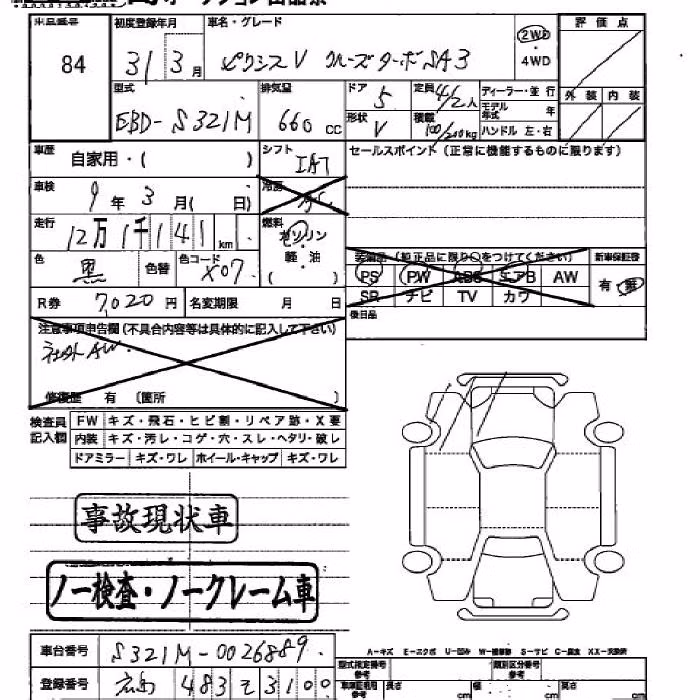 出品番号 初度登録年月 車名・グレード 2WD・4WD 評価点
84 31 3月 ピクシスV クルーズターボSA3
型式 排気量 ドア 5 定員 4/2人 ディーラー・並行 外装 内装
EBD-S321M 660cc 形状 V 積載 100/200kg モデル年式 年 ハンドル 左・右
車歴 自家用・( ) シフト IAT セールスポイント(正常に機能するものに限ります)
車検 9年3月( 日) 冷房
走行 12万1千141km 燃料 ガソリン 軽・油 ( )
色 黒 色替 色コード X07 装備品(純正品に限り○をつけてください) 新車保証書
PS PW ABS エアB AW 有・無
SR ナビ TV カワ
R券 7,020円 名変期限 月 日
後日品
注意事項申告欄(不具合内容等は具体的に記入して下さい)
社外AW
修復歴 有 〔箇所 〕
検査員記入欄 FW キズ・飛石・ヒビ割・リペア跡・X要
内装 キズ・汚レ・コゲ・穴・スレ・ヘタリ・破レ
ドアミラー キズ・ワレ ホイール・キャップ キズ・ワレ
事故現状車
ノー検査・ノークレーム車
A-キズ E-エクボ U-凹み W-補修跡 S-サビ C-腐食 XX-交換済
車台番号 S321M-0026889
型式指定番号 参考 類別区分番号 参考
登録番号 広島 483 そ 3100
車庫証明用 参考 長さ cm 幅 cm 高さ cm